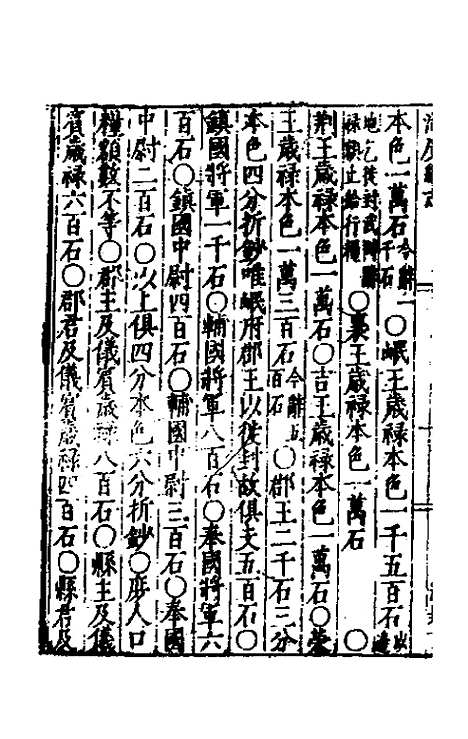 本色一萬石今辭一千石○岷王歲祿本色一千五百石以邊
地乞徙封武岡祿額止給行糧○襄王歲祿本色一萬石○
荆王歲祿本色一萬石○吉王歲祿本色一萬石○榮
王歲祿本色一萬三百石今辭五百石○郡王二千石三分
本色四分折鈔唯岷府郡王以徙封故俱支五百石○
鎮國將軍一千石○輔國將軍八百石○奉國將軍六
百石○鎮國中尉四百石○輔國中尉三百石○奉國
中尉二百石○以上俱四分本色六分折鈔○庶人口
糧額數不等○郡主及儀賓歲祿八百石○縣主及儀
賓歲祿六百石○郡君及儀賓歲祿四百石○縣君及